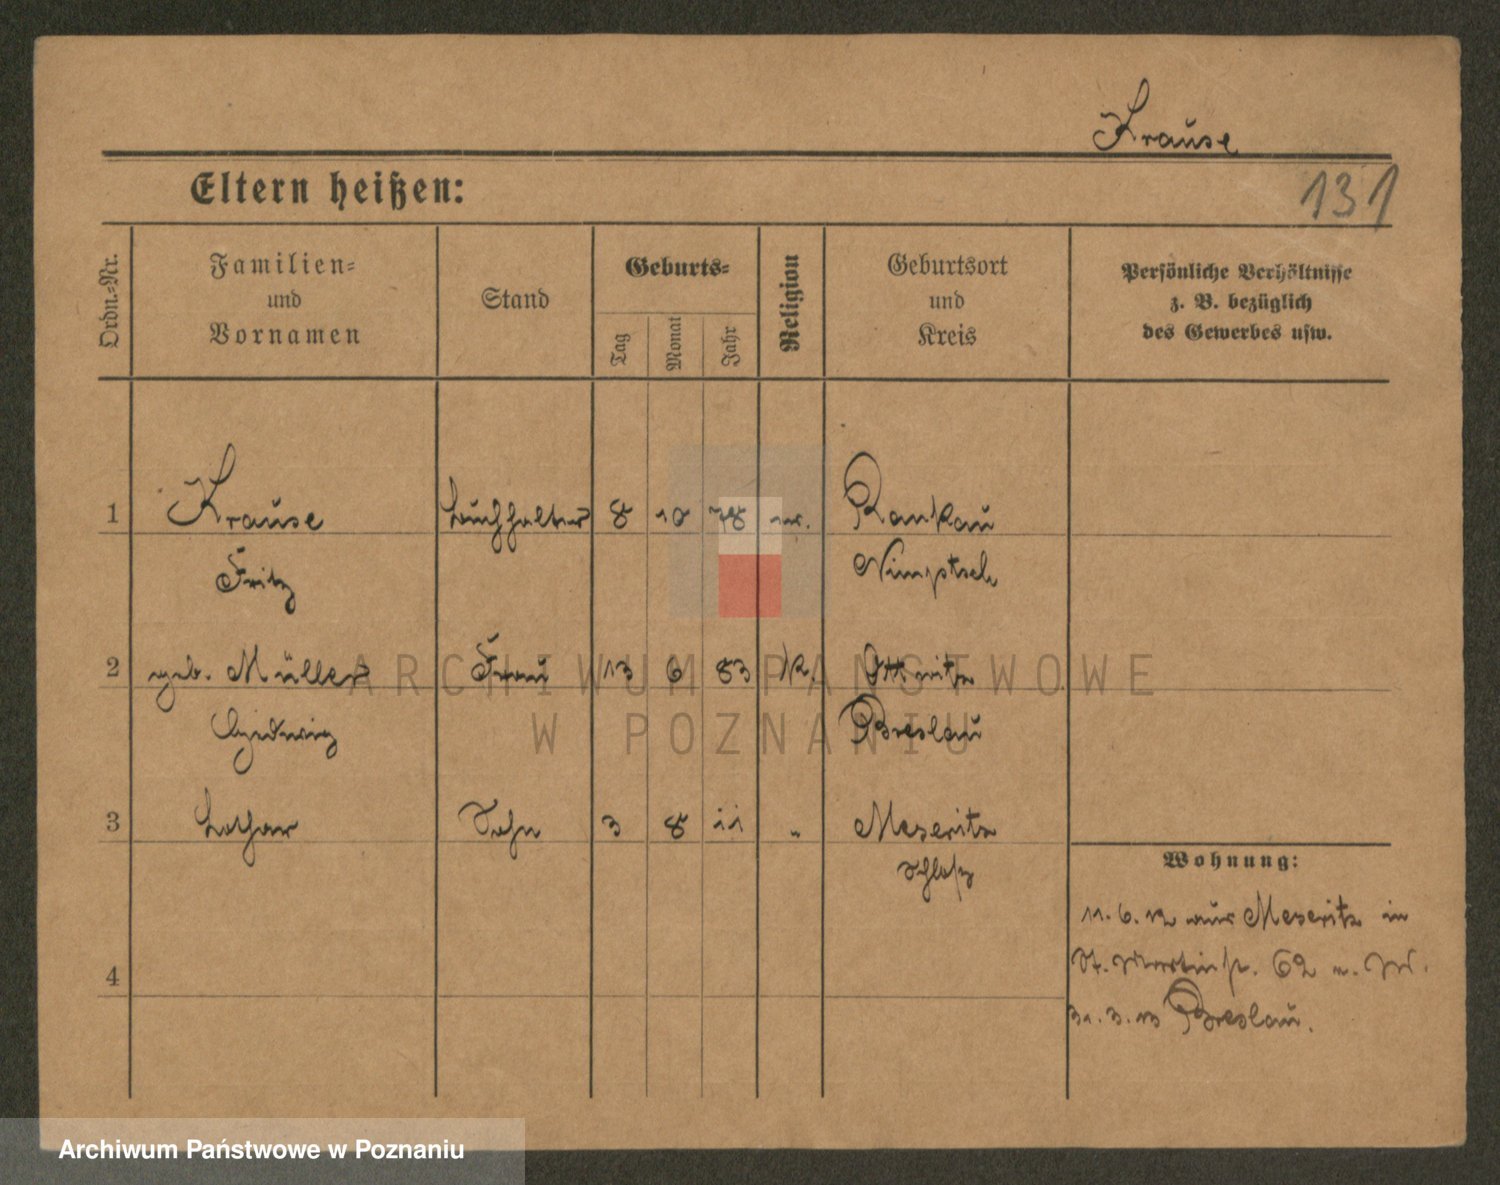 Krause
Eltern heißen:
131
Ordn.-Nr.
Familien-
und
Vornamen
Stand
Geburts-
Tag
Monat
Jahr
Religion
Geburtsort
und
Kreis
Persönliche Verhältnisse
z. B. bezüglich
des Gewerbes usw.
1 Krause Buchhalter 8 10 78 Rankau
Fritz Nimptsch
2 geb. Müller Frau 13 6 83 K. Ottwitz
Hedwig Breslau
3 Lothar Sohn 3 8 11 " Meseritz
Schloß
Wohnung:
11. 6. 12 aus Meseritz in
St. Martinstr. 62
31. 3. 13 Breslau.
4
ARCHIWUM PAŃSTWOWE
W POZNANIU
Archiwum Państwowe w Poznaniu